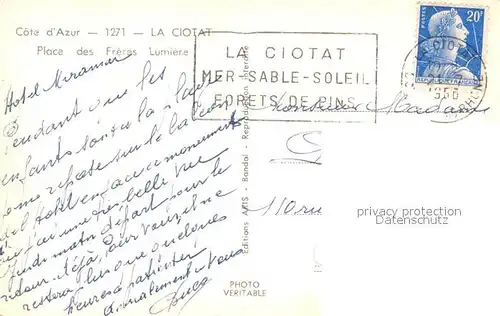 Côte d'Azur - 1271 - LA CIOTAT
Place des Frères Lumière
LA CIOTAT
MER-SABLE-SOLEIL
FORETS DE PINS
POSTES
20F
1958
Hotel Miramar
Pendant que les
enfants sont à la plage
me repose sur le balcon
de l'hotel en face
j'ai une très belle vue
Jeudi matin départ pour le
retour déjà, Pour vous il ne
restera plus que quelques
heures à patienter
Amicalement à Vous
Monsieur Madame
110 ru
Editions ARIS - Bandol - Reproduction interdite
PHOTO
VERITABLE
privacy protection
Datenschutz